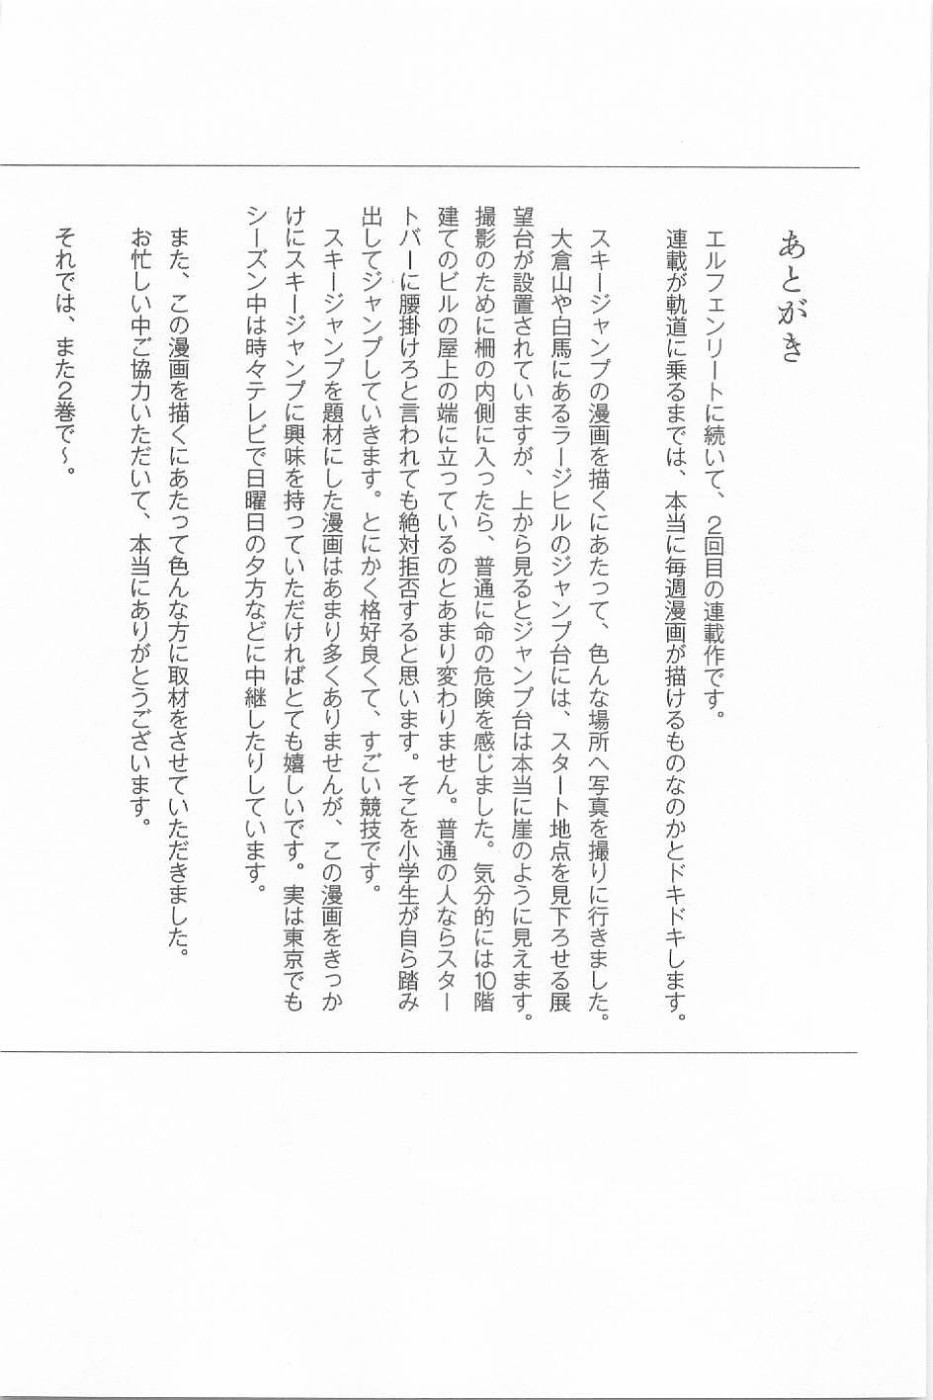 あとがき
エルフェンリートに続いて、2回目の連載作です。
連載が軌道に乗るまでは、本当に毎週漫画が描けるものなのかとドキドキします。
スキージャンプの漫画を描くにあたって、色んな場所へ写真を撮りに行きました。
大倉山や白馬にあるラージヒルのジャンプ台には、スタート地点を見下ろせる展
望台が設置されていますが、上から見るとジャンプ台は本当に崖のように見えます。
撮影のために柵の内側に入ったら、普通に命の危険を感じました。気分的には10階
建てのビルの屋上の端に立っているのとあまり変わりません。普通の人ならスター
トバーに腰掛けろと言われても絶対拒否すると思います。そこを小学生が自ら踏み
出してジャンプしていきます。とにかく格好良くて、すごい競技です。
スキージャンプを題材にした漫画はあまり多くありませんが、この漫画をきっか
けにスキージャンプに興味を持っていただければとても嬉しいです。実は東京でも
シーズン中は時々テレビで日曜日の夕方などに中継したりしています。
また、この漫画を描くにあたって色んな方に取材をさせていただきました。
お忙しい中ご協力いただいて、本当にありがとうございます。
それでは、また2巻で〜。